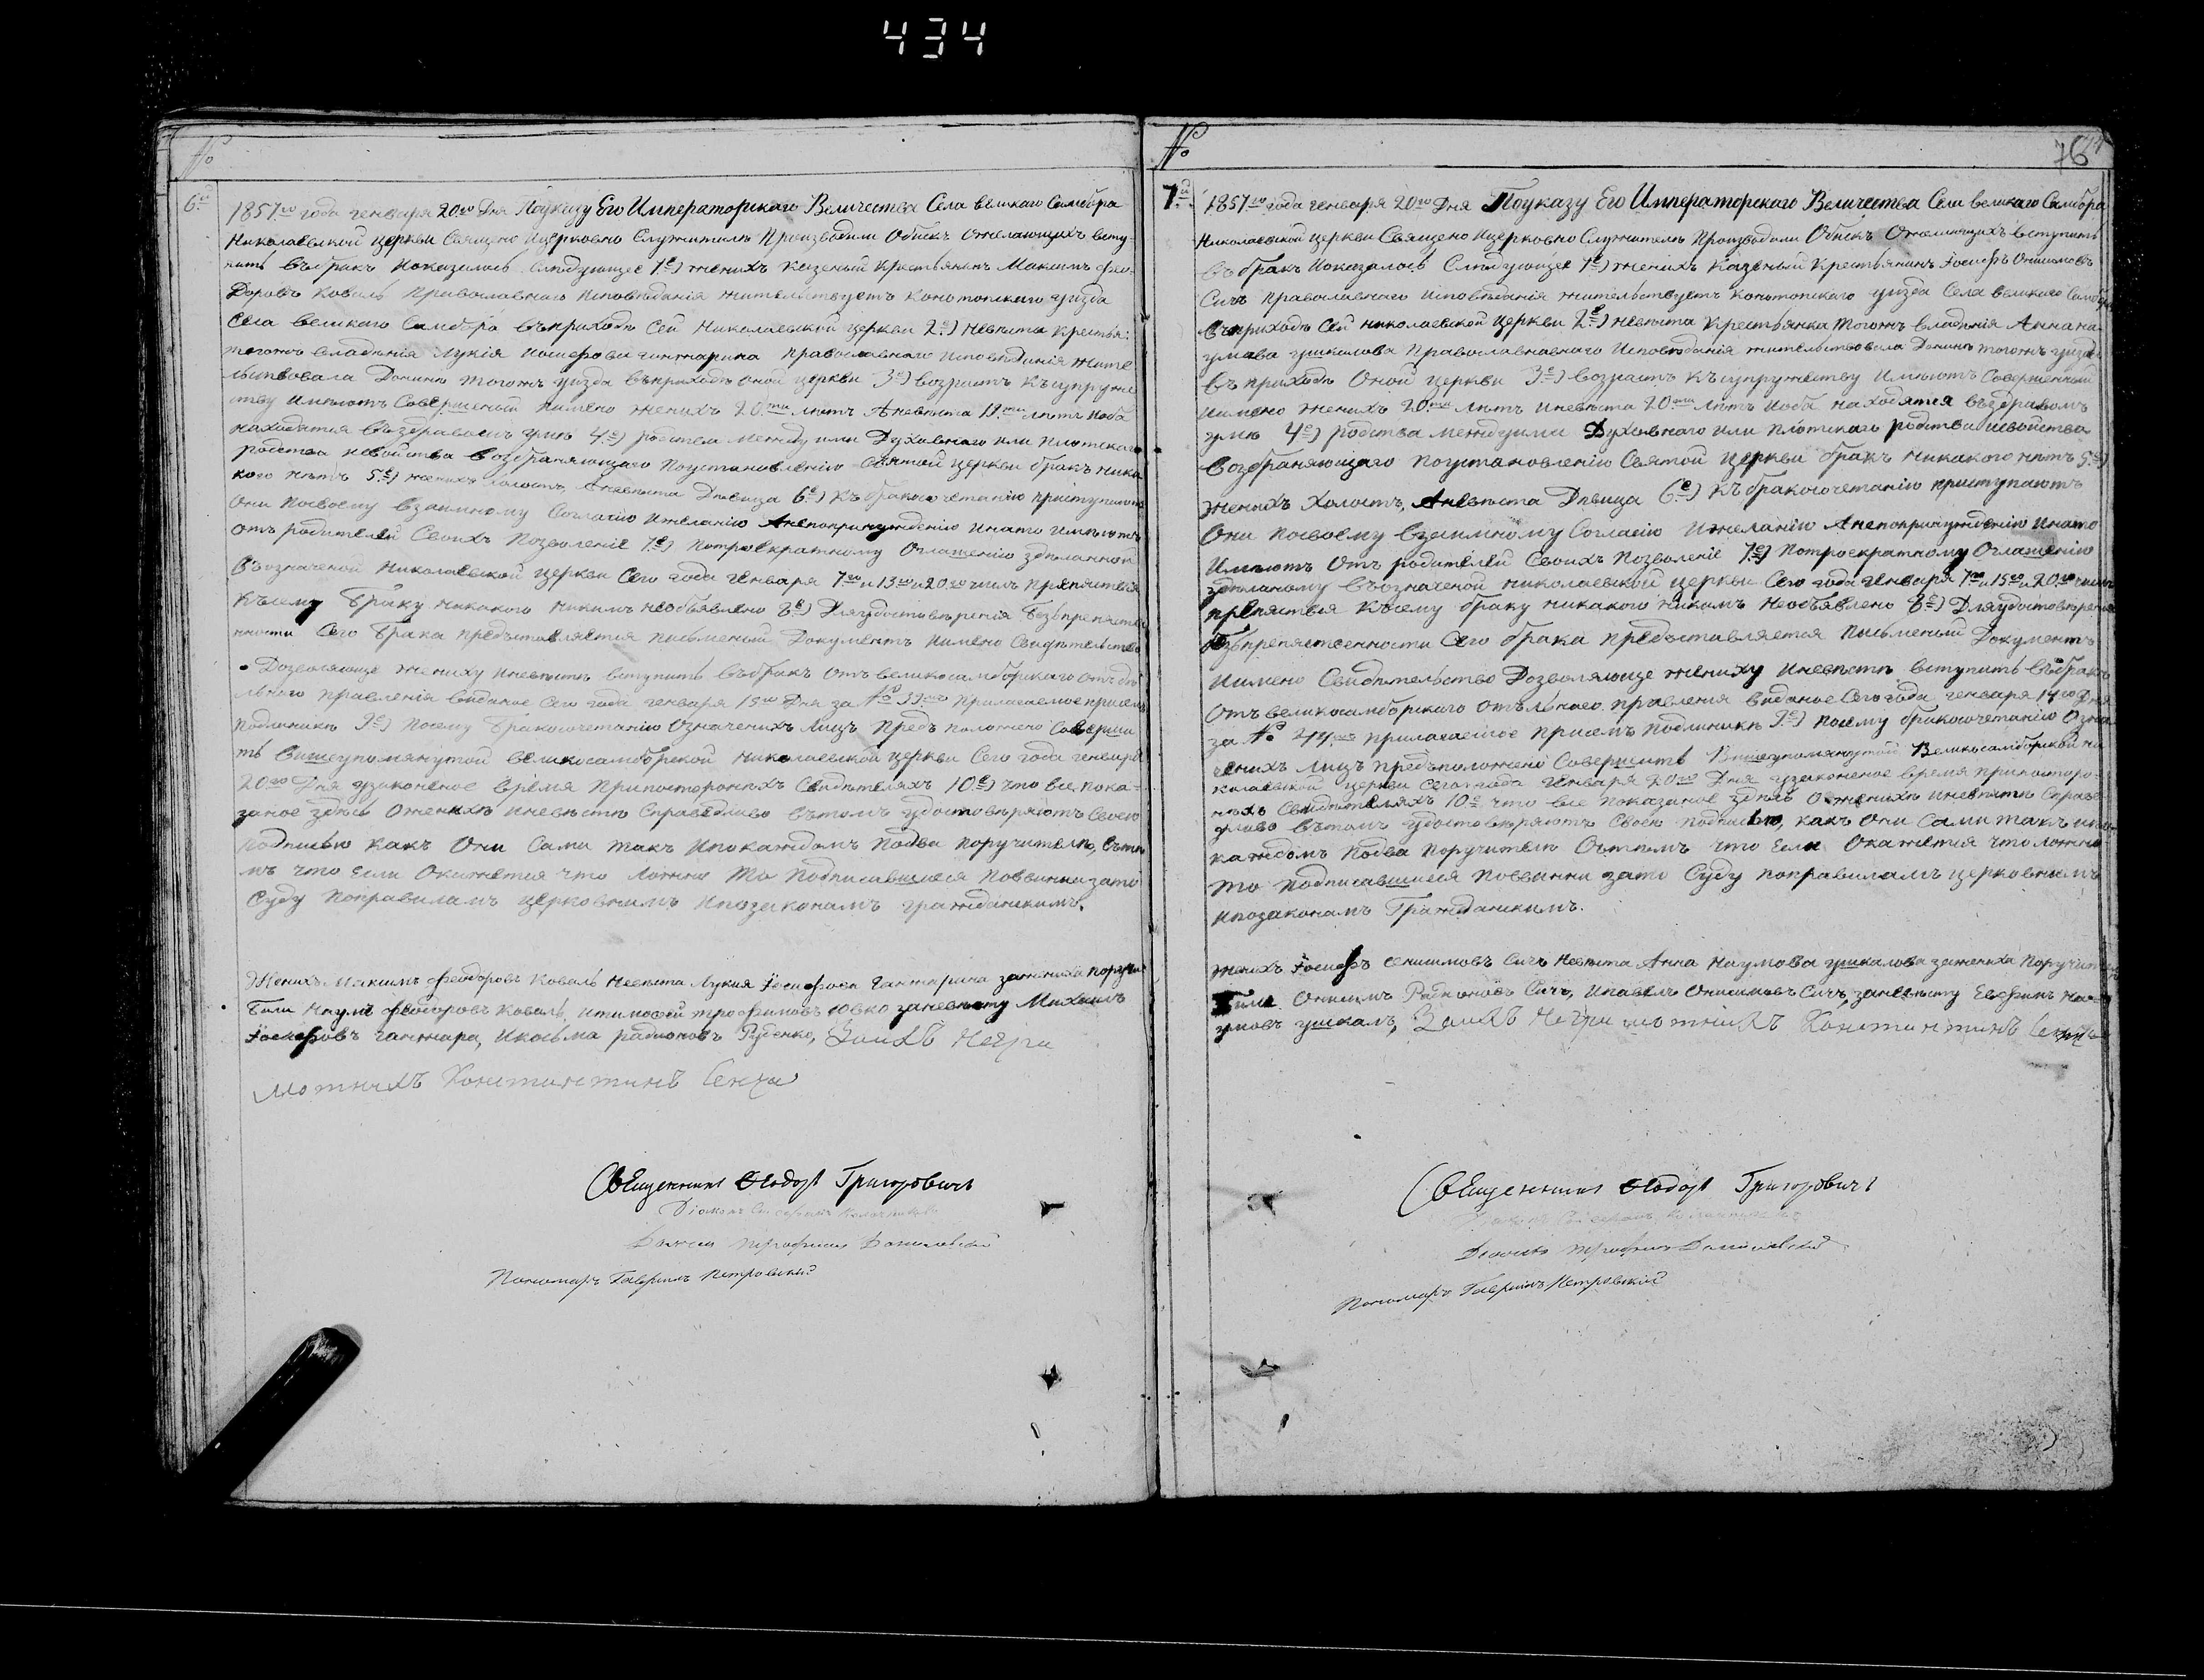 434
№
6й
1857го года генваря 20го Дня Поуказу Его Императорскаго Величества Села великаго Самбора
Николаевской церкви Священо Ицерковно Служители Производили Обыскъ Ожелающихъ всту-
пить Вьбракъ Иоказалось Следующее 1е) женихъ Казеный Крестьянинъ Максимъ Фео-
доровъ Коваль Православнаго Исповѣданія жительствуетъ Конотопскаго уизда
Села великаго Самбора въприходѣ Сей Николаевской церкви 2е) Невѣста Крестья:
тогожъ владѣнія Лукія Иосифова ганжарина православнаго Исповѣданія жите
льствовала Донинѣ тогожъ уизда въприходѣ оной церкви 3е) возрастъ Късупруже
ству Имѣютъ Совершеный Иимено женихъ 20ти лѣтъ Аневѣста 19ти лѣтъ Иоба
находятся Въздравомъ умѣ 4е) родства между ими Духовнаго или плотскаго
родства Исвойства Возбраняющаго Поустановленію Святой церкви бракъ Ника
кого нѣтъ 5е) женихъ холостъ, Аневѣста Дѣвица 6е) Къбракосочетанію приступаютъ
Они Посвоему Взаимному Согласію Ижеланію Анепопринужденію Инато Имѣютъ
отъ родителей Своихъ Позволеніе 7е) Потроекратному Оглашенію зделанной
Възначеной Николаевской церкви Сего года Генваря 7го и 13го и 20го числъ Препятствія
Късему Браку Никакого Никимъ Необъявлено 8е) Дляудостовѣренія Безъпрепятстве
нности Сего Брака Предъставляется письменый Документъ Иимено Свидѣтельство
Дозволяюще жениху Иневѣстѣ вступить въбракъ Отъвеликосамборскаго отъдѣ
льнаго правленія виданое Сего года генваря 15го Дня за № 39мъ Прилагаемое присемъ
Подлиникѣ 9е) Посему Бракосочетанію Означенихъ Лицъ Предъположено Соверши
ть Вишеупомянутой великосамборской николаевской церкви Сего года генваря
20го Дня узаконеное время Припостороннихъ Свидѣтеляхъ 10е) что все пока-
заное здѣсь Оженихѣ Иневѣстѣ Справедливо Вътомъ удостовѣряютъ Своею
подписью какъ Они Сами такъ Ипокаждомъ Подва поручителя, Сътѣ
мъ что Если Окажется что ложно То Подписавшиеся Повиниы зато
Суду Поправиламъ церковнимъ Ипозаконамъ гражданскимъ.
Женихъ Максимъ Феодоровъ Коваль Невѣста Лукия Іосифова Ганжарина зажениха поручи
Били Наумъ Феодоровъ Коваль, Итимофей трофимовъ Ювко заневѣсту Михаилъ
Іосифовъ ганжара, Икосьма радионовъ Руденко, Заихъ Негра
мотнихъ Константинъ Сенза
Священникъ Феодоръ Григоровичъ
Діаконъ
Дьячокъ трофимъ Данилевский
Пономарь Гавриилъ Петровский
№
7й
1857го года генваря 20го Дня Поуказу Его Императорскаго Величества Села великаго Самбора
Николаевской церкви Священо Ицерковно Служители Производили Обыскъ Ожелающихъ вступить
въбракъ Иоказалось Следующее 1е) женихъ Казеный Крестьянинъ Іосифъ Онисимовъ
Сичъ православнаго Исповѣданія жительствуетъ Конотопскаго уизда Села великаго Самбора
въприходѣ Сей николаевской церкви 2е) Невѣста Крестьянка Тогожъ владѣнія Анна на
умова ушкалова Православнавнаго Исповѣданія жительствовала Донинѣ тогожъ уизда
въприходѣ Оной церкви 3е) возрастъ Късупружеству Имѣютъ Совершенный
Иимено женихъ 20ти лѣтъ Иневѣста 20ти лѣтъ Иоба находятся въздравомъ
умѣ 4е) родства междуими Духовнаго или плотскаго родства Исвойства
Возбраняющаго Поустановленію Святой церкви бракъ никакого нѣтъ 5е)
женихъ Холостъ, Аневѣста Дѣвица 6е) Къбракосочетанію приступаютъ
Они посвоему взаимному Согласію Ижеланію Анепопринужденію Инато
Имѣютъ Отъ родителей Своихъ Позволеніе 7е) Потроекратному Оглашенію
зделаному Възначеной николаевской церкви Сего года Генваря 7го и 15го и 20го числъ
препяствія Късему браку никакого никимъ Необъявлено 8е) Дляудостовѣренія
Безпрепяственности Сего брака предъставляется Письменый Документъ
Иимено Свидѣтельство Дозволяюще жениху Иневѣстѣ вступить въбракъ
Отъвеликосамборского отъльнаго правленія виданое Сего года генваря 14го Дня
за № 44мъ прилагаемое Присемъ Подлиникѣ 9е) посему бракосочетанію Озна
ченихъ лицъ предъположено Совершить Вишеупомянутой Великосамборской ни
колаевской церкви Сегогода Генваря 20го Дня узаконеное время припосторо-
нихъ Свидѣтеляхъ 10е что все показаное здѣсь Оженихѣ Иневѣстѣ Справе
дливо вътомъ удостовѣряютъ Своею подписью, какъ Они Сами такъ ипо
каждомъ Подва Поручителя Сътемъ что Если Окажется что ложно
То подписавшиеся Повинни зато Суду поправиламъ церковнимъ
Ипозаконамъ Гражданскимъ.
женихъ Іосифъ Онисимовъ Сичъ Невѣста Анна Наумова ушкалова зажениха Поручит
Били Онисимъ Радионовъ Сичъ, Ипавелъ Онисимовъ Сичъ, заневѣсту Евфимъ На
умовъ ушкалъ, Заихъ Негра мотнихъ Константинъ Сенза
Священникъ Феодоръ Григоровичъ
Дьячокъ трофимъ Данилевский
Пономарь Гавриилъ Петровский